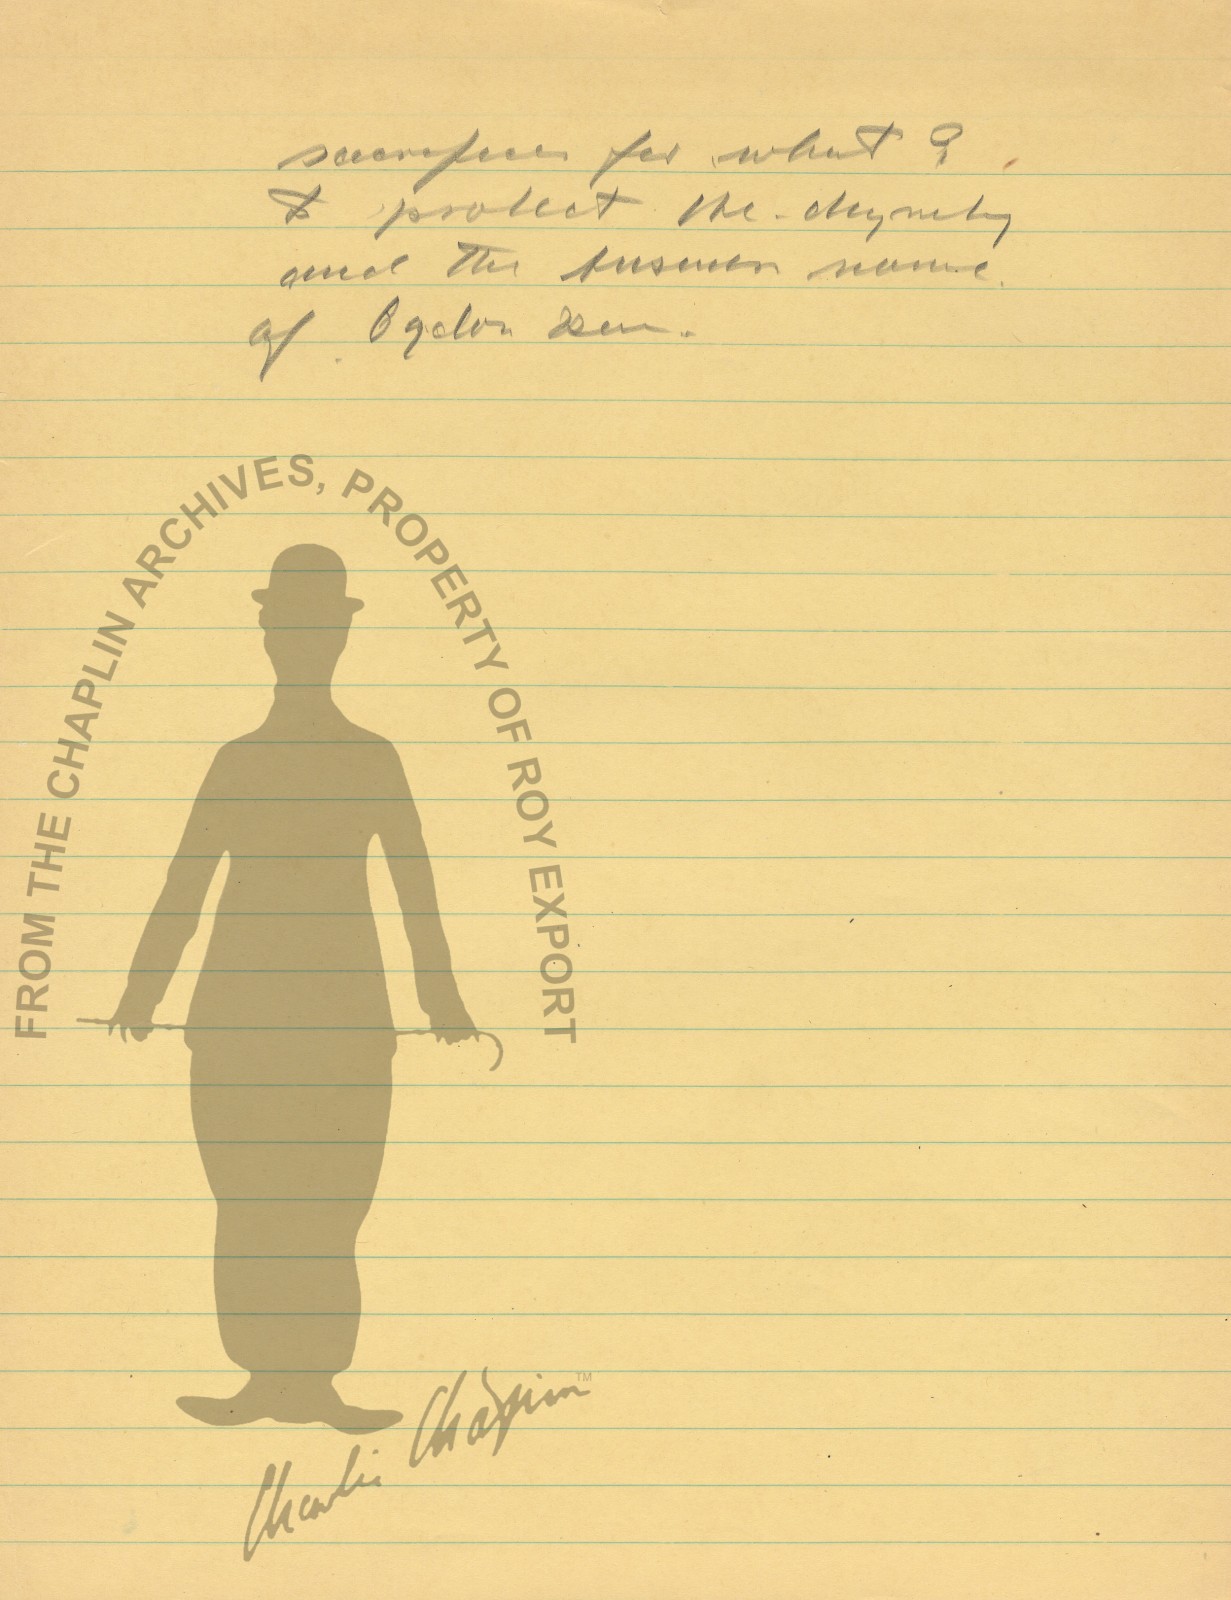 sacrifices for what?
to protect the dignity
and the business name
of Ogden
FROM THE CHAPLIN ARCHIVES, PROPERTY OF ROY EXPORT
Charlie Chaplin™